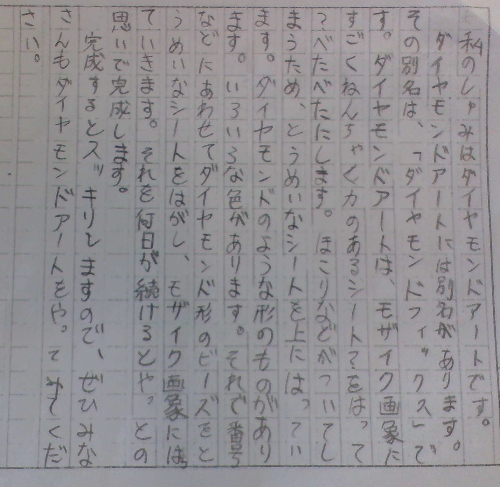 私のしゅみはダイヤモンドアートです。
ダイヤモンドアートには別名があります。
その別名は、「ダイヤモンドフィックス」で
す。ダイヤモンドアートは、モザイク画象に
すごくねんちゃく力のあるシートをはって
べたべたにします。ほこりなどがついてし
まうため、とうめいなシートを上にはってい
ます。ダイヤモンドのような形のものがあり
ます。いろいろな色があります。それで番号
などにあわせてダイヤモンド形のビーズをと
うめいなシートをはがし、モザイク画象には
ていきます。それを何日が続けるとやっとの
思いで完成します。
完成するとスッキリしますので、ぜひみな
さんもダイヤモンドアートをやってみてくだ
さい。